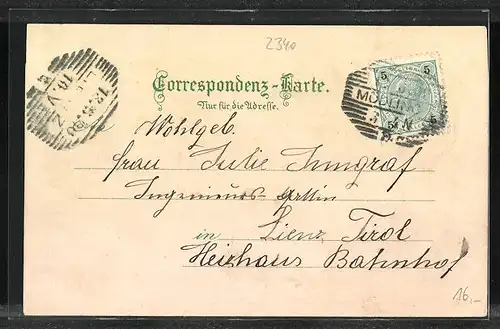 2340
Correspondenz-Karte.
Nur für die Adresse.
5 5
MÖDLING
Wohlgeb.
Frau Julie Jungraf
Ingenieurs-Gattin
in Lienz Tirol
Heizhaus Bahnhof
16,-